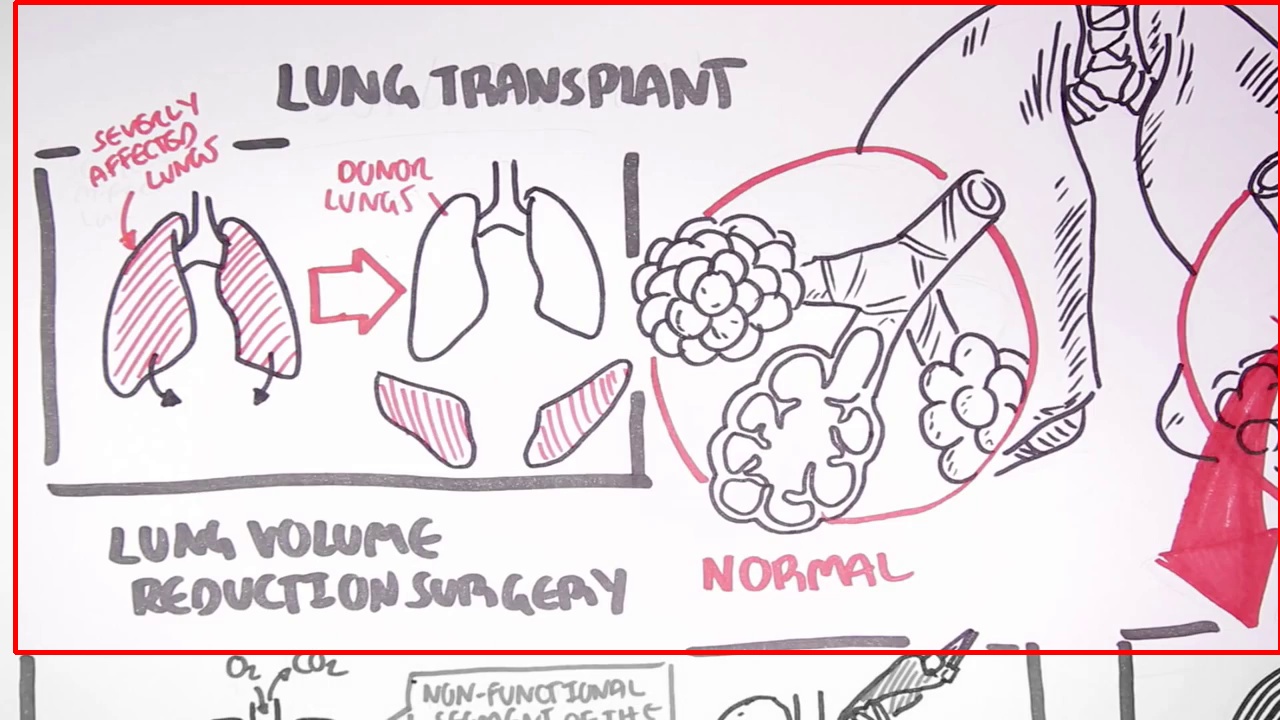 LUNG TRANSPLANT
SEVERLY
AFFECTED
LUNGS
DONOR
LUNGS
LUNG VOLUME
REDUCTION SURGERY
NORMAL
O₂ CO₂
NON-FUNCTIONAL
SEGMENT OF THE